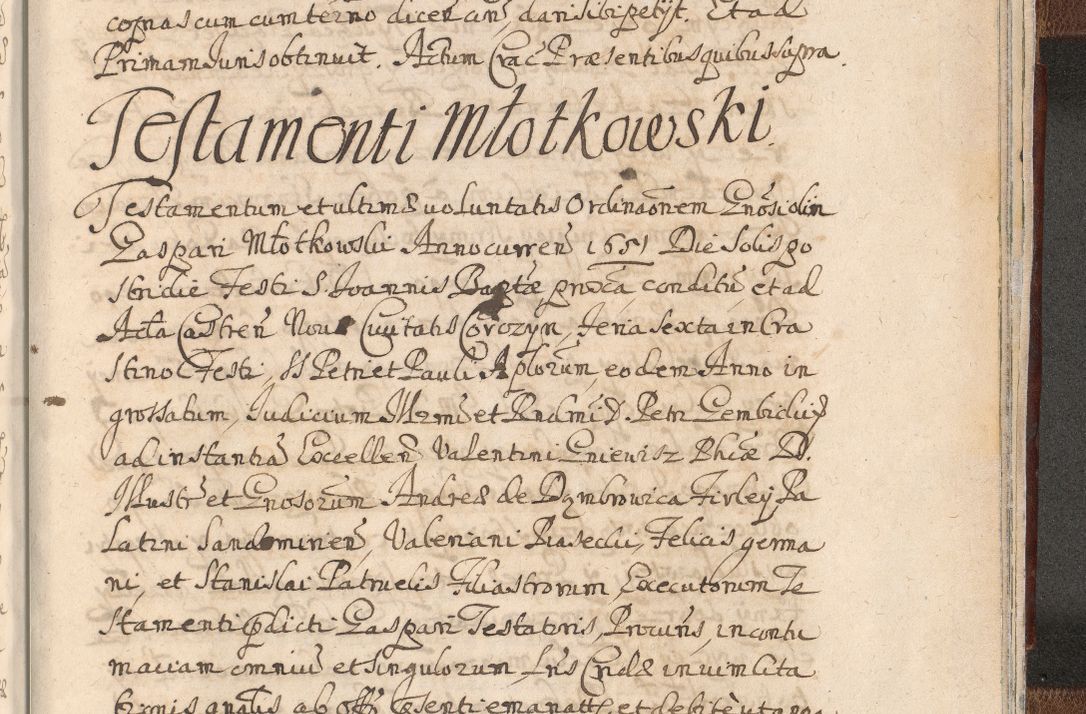 cognascum cum termo dicen an, dari sibi petijt. Et ad
Primam Iuris obtinuit. Actum Crac Præsentibus quibus supra.
Testamenti Młotkowski.
Testamentum et ultimæ voluntatis Ordinaõnem Gnõsi olin
Gaspari Młotkowski Anno curreñ 1651 Die Solis po
stridie Festi S. Joannis Baptæ proxã conditũ et ad
Acta Castreñ Novæ Civitatis Corczyn, Feria sexta in Cra
stino Festi SS Petri et Pauli Aplorũm, eodem Anno in
grossatum, Iudicium Illrmi et Rndmi D. Petri Gembicki
ad instantiã Excelleñ Valentini Gniewisz Phiæ D.
Illustr et Gnosorũm Andreæ de Dąmbrowica Firley Pa
latini Sandomirieñ, Valeriani Piasecki, Felicis germa
ni, et Stanislai Patruelis Filiastrorum Executorum Te
stamenti pdicti Gaspari Testatoris, Procuris, in contu
maciam omniũ et singulorum Lris Crad in vim Cita
tionis ab Offi emanatt, et debitè